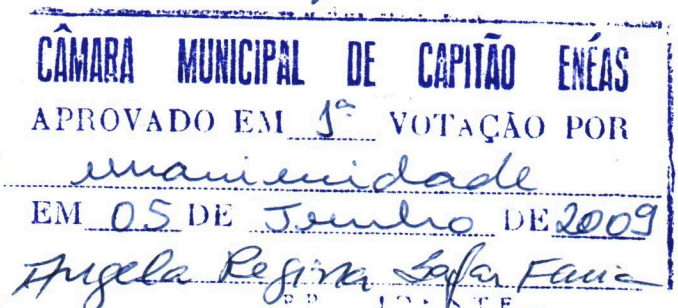 CÂMARA MUNICIPAL DE CAPITÃO ENÉAS
APROVADO EM 1ª VOTAÇÃO POR
unanimidade
EM 05 DE Junho DE 2009
Angela Regina Safar Faria